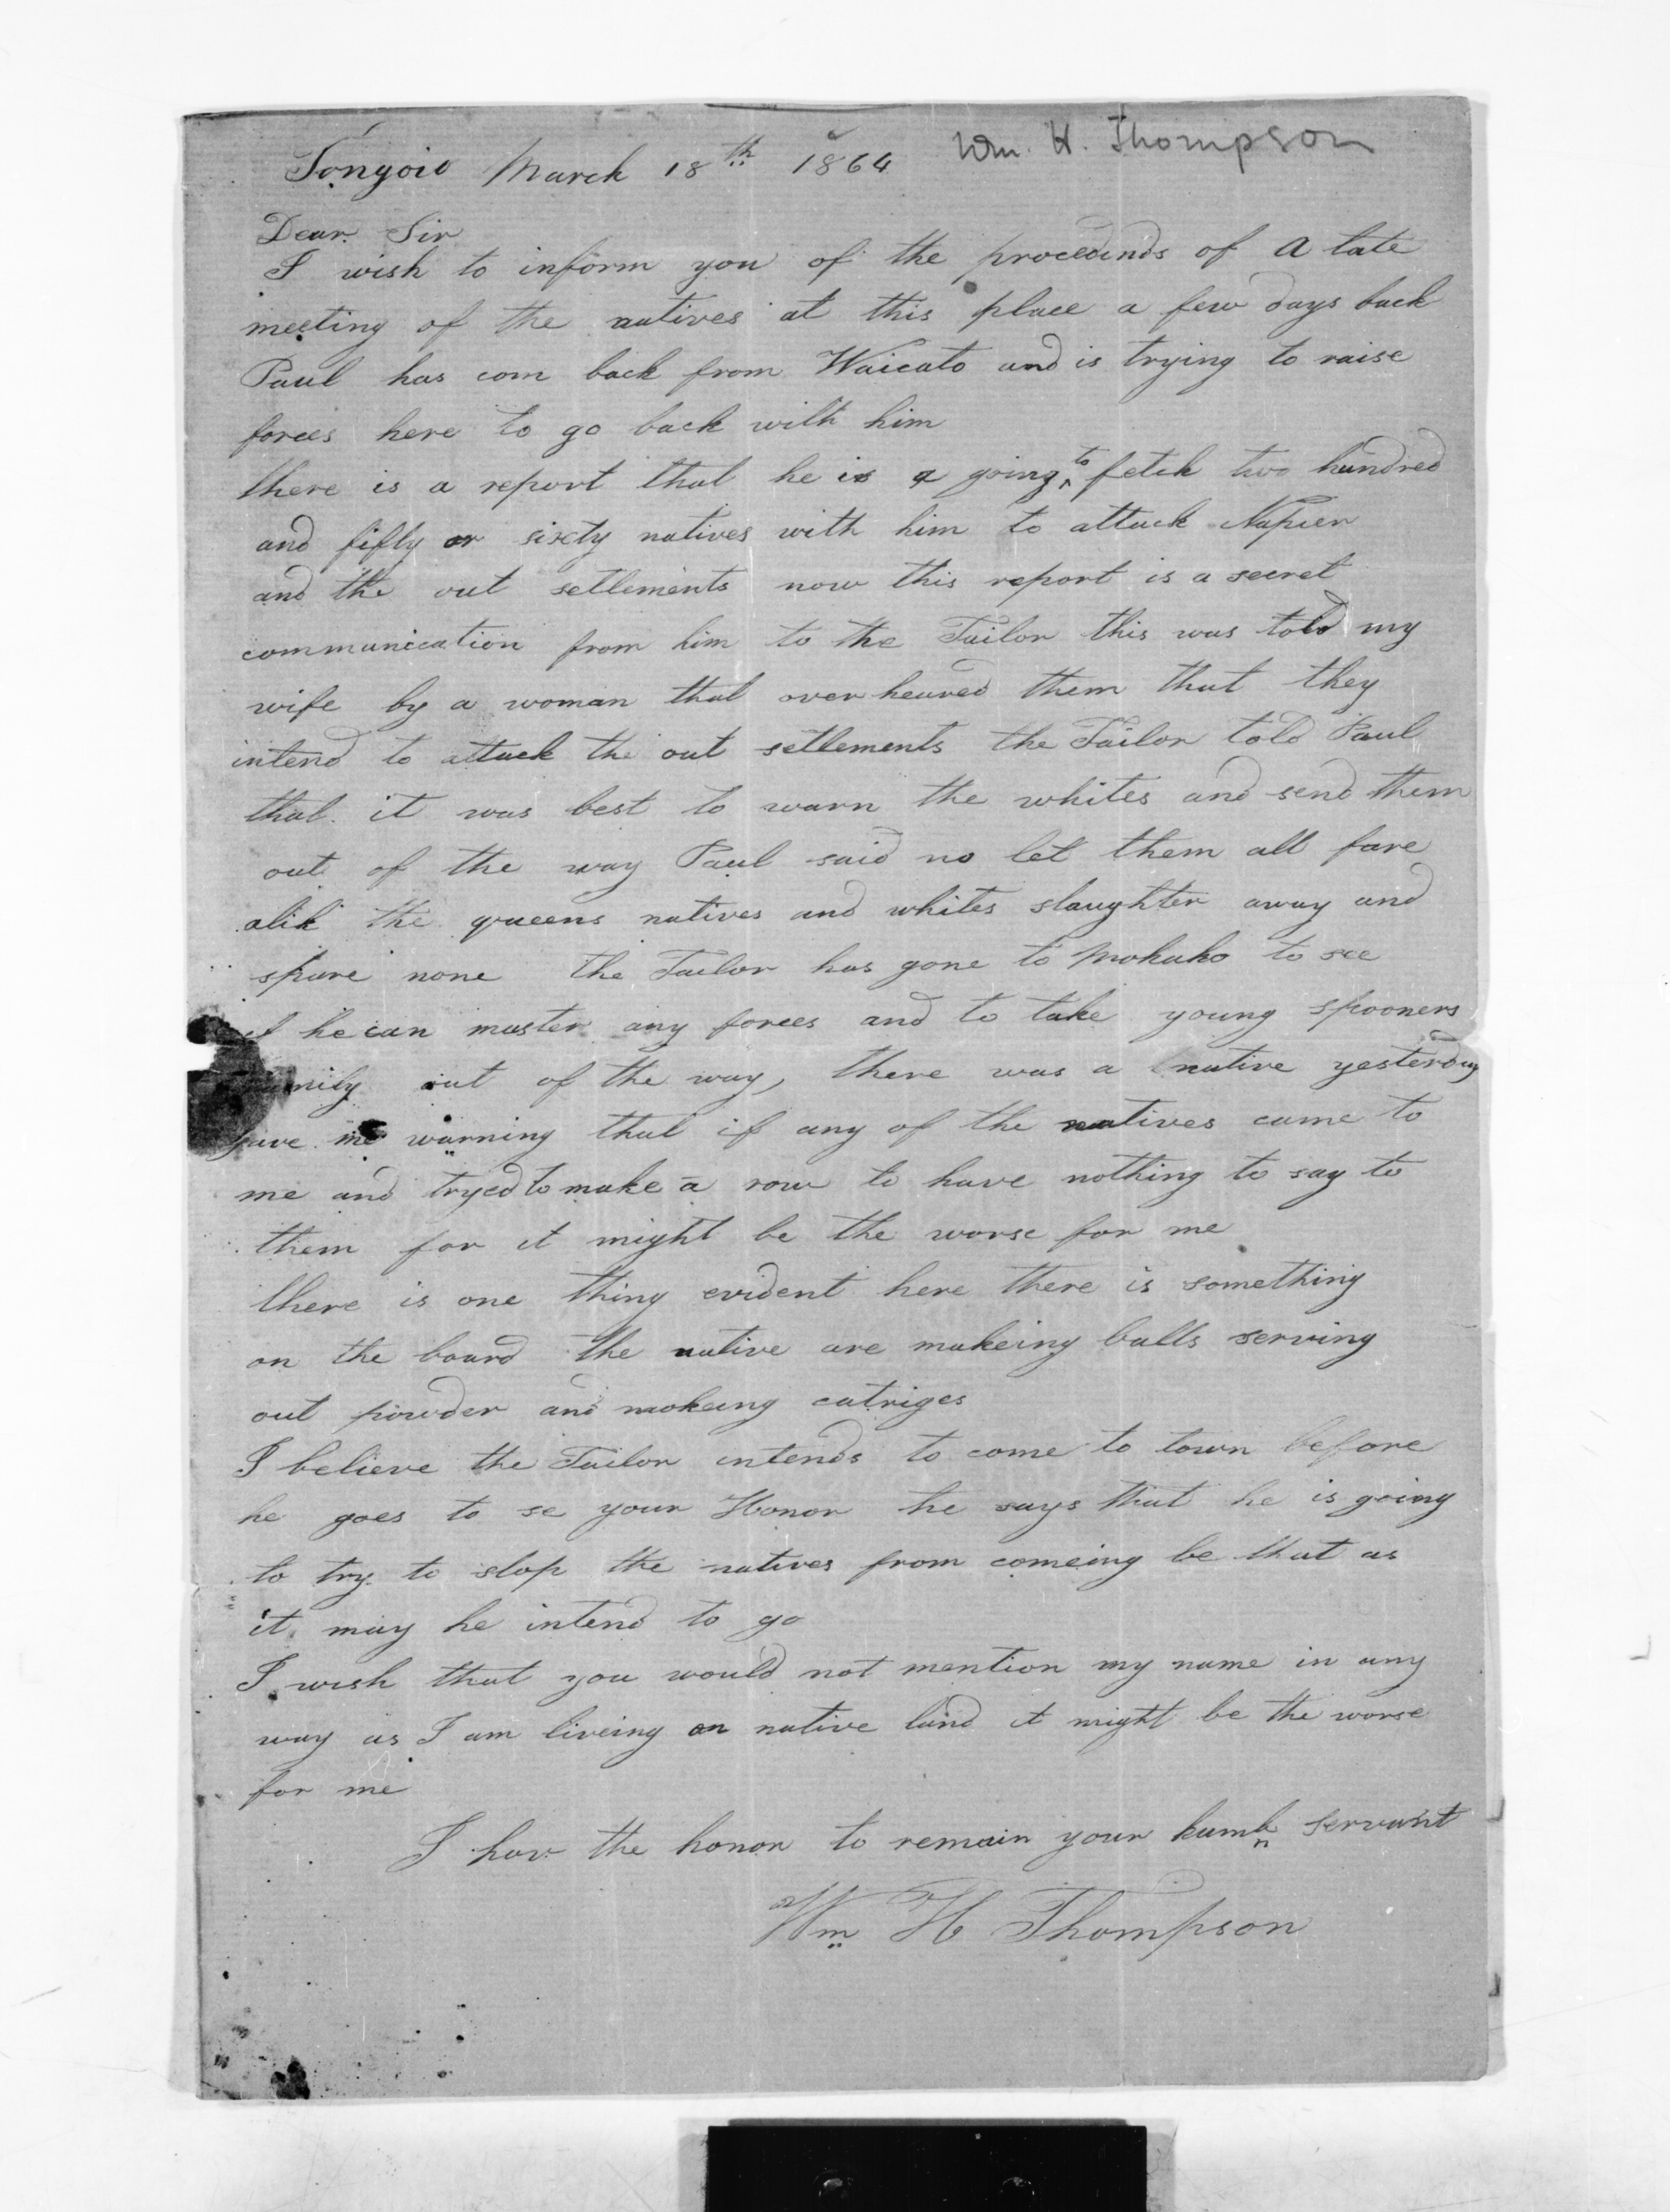 Wm. H. Thompson
Tongoio March 18th 1864
Dear Sir
I wish to inform you of the procedinds of a late
meeting of the natives at this place a few days back
Paul has com back from Waicato and is trying to raise
forces here to go back with him
there is a report that he is a going to fetch two hundred
and fifty or sixty natives with him to attack Napier
and the out settlements now this report is a secret
communication from him to the Tailor this was told my
wife by a woman that over heared them that they
intend to attack the out settlements the Tailor told Paul
that it was best to warn the whites and send them
out of the way Paul said no let them all fare
alik the queens natives and whites slaughter away and
spare none the Tailor has gone to Mohako to see
if he can muster any forces and to take young spooners
family out of the way, there was a native yesterday
gave me warning that if any of the natives came to
me and tryed to make a row to have nothing to say to
them for it might be the worse for me
there is one thing evident here there is something
on the board the native are makeing balls serving
out powder and makeing catriges
I believe the Tailor intends to come to town before
he goes to se your Honor he says that he is going
to try to stop the natives from comeing be that as
it may he intend to go
I wish that you would not mention my name in any
way as I am liveing on native land it might be the worse
for me
I hav the honor to remain your humb servant
Wm H Thompson